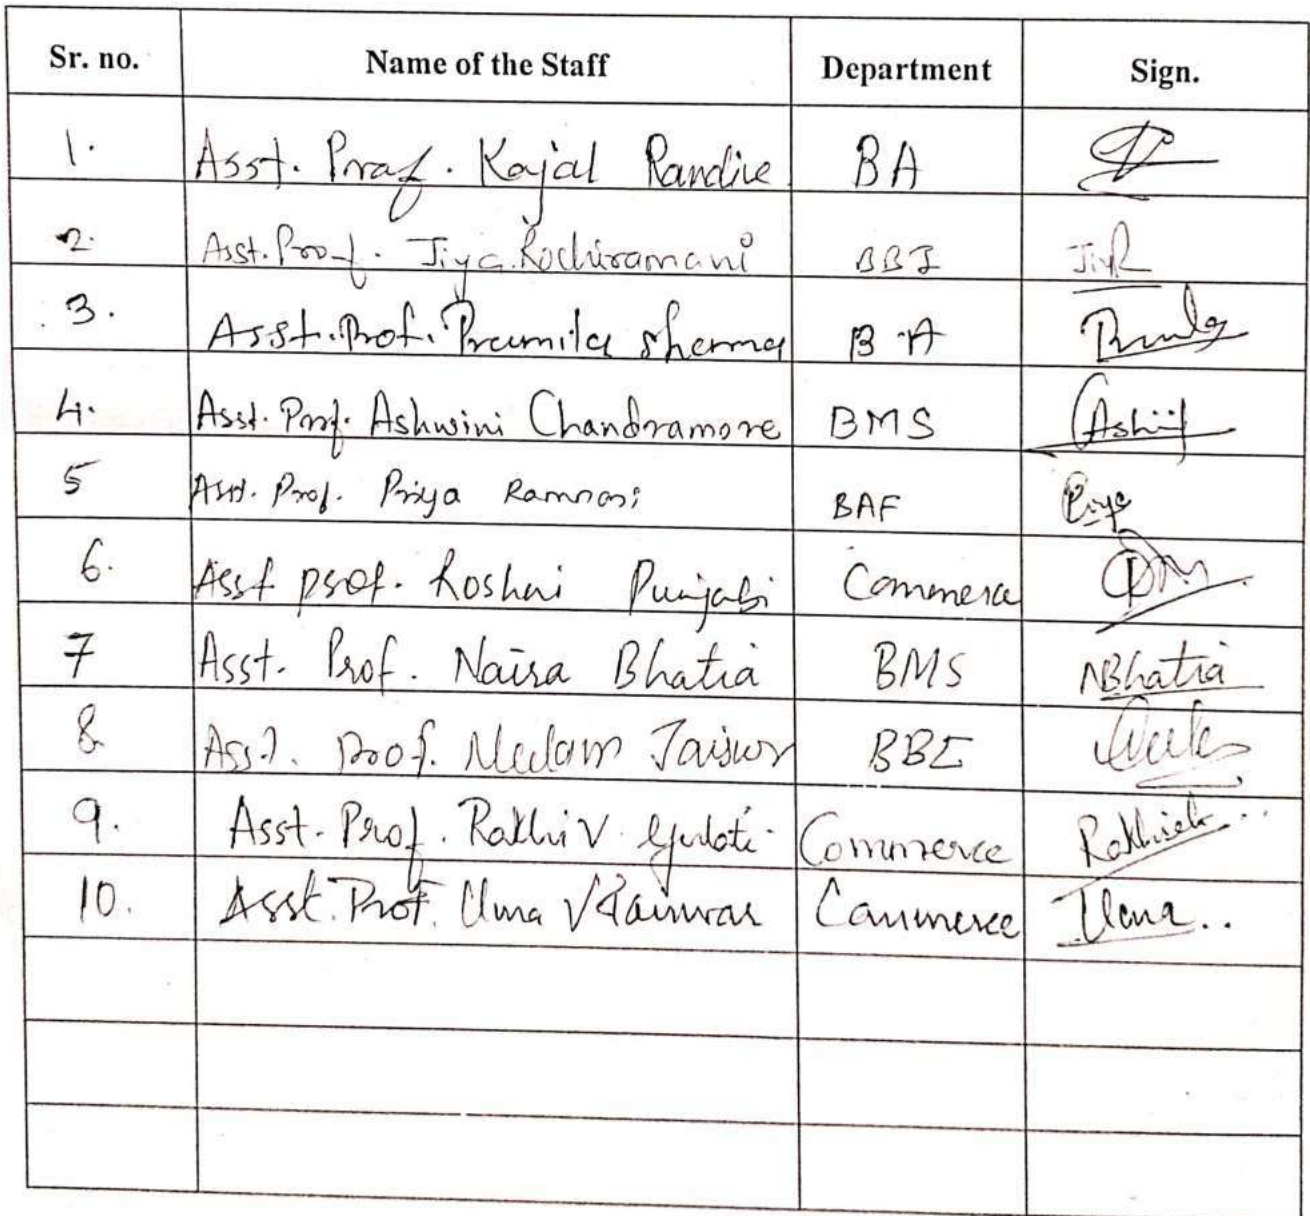 Sr. no. Name of the Staff Department Sign.
1. Asst. Prof. Kajal Randive BA
2. Asst. Prof. Jiya Rochiramani BBI JiyR
3. Asst. Prof. Pramila Sharma BA
4. Asst. Prof. Ashwini Chandramore BMS
5 Asst. Prof. Priya Ramnani BAF Priya
6. Asst prof. Roshni Punjabi Commerce
7 Asst. Prof. Naira Bhatia BMS NBhatia
8 Asst. Prof. Neelam Jaiswar BBI
9. Asst. Prof. Rakhi V. Gulati Commerce
10. Asst. Prof. Uma V Commerce Uma..